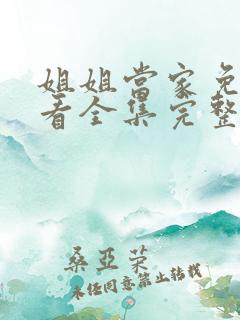 姐姐當家免
看全集完整
桑亞榮
未经同意禁止转载